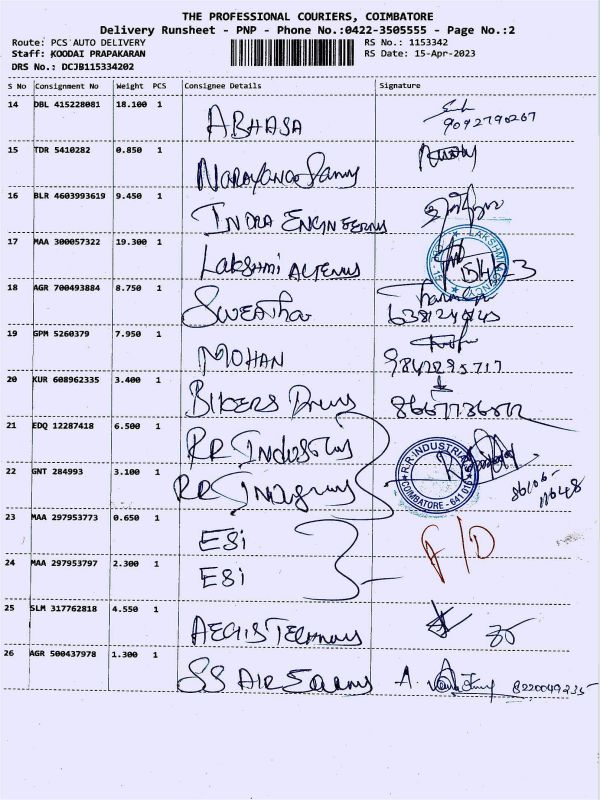 THE PROFESSIONAL COURIERS, COIMBATORE
Delivery Runsheet - PNP - Phone No.:0422-3505555 - Page No.:2
Route: PCS AUTO DELIVERY RS No.: 1153342
Staff: KOODAI PRAPAKARAN RS Date: 15-Apr-2023
DRS No.: DCJB115334202
S No Consignment No Weight PCS Consignee Details Signature
14 DBL 415228081 18.100 1 ABHASA
9092790267
15 TDR 5410282 0.850 1 Narayana
16 BLR 4603993619 9.450 1 INDRA ENGINEERING
17 MAA 300057322 19.300 1 LAKSHMI
LAKSHMI AGENCY
18 AGR 700493884 8.750 1 SWEATHA
19 GPM 5260379 7.950 1 MOHAN
9842295717
20 KUR 608962335 3.400 1 BIKERS
21 EDQ 12287418 6.500 1 RR
RJR INDUSTRIES
COIMBATORE - 641
22 GNT 284993 3.100 1 RR
23 MAA 297953773 0.650 1 ESi
24 MAA 297953797 2.300 1 ESi
25 SLM 317762818 4.550 1 AEGIS
26 AGR 500437978 1.300 1 SS AIR
A. 8220049235